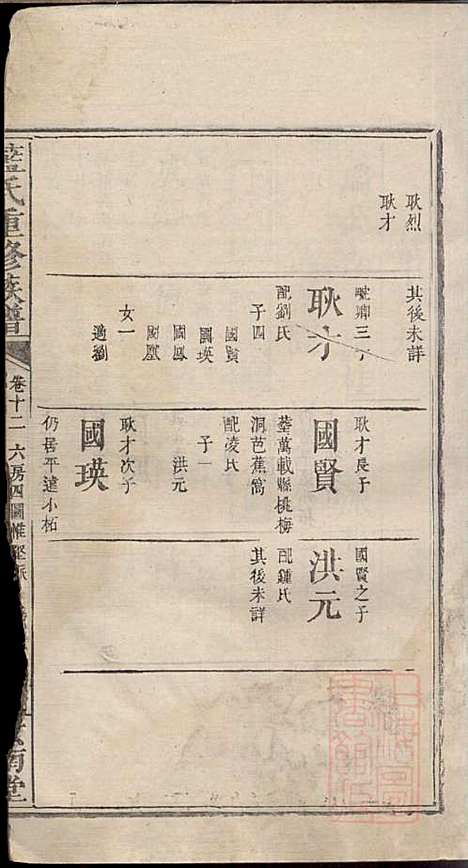 耿烈
耿才
其後未詳
毗瑚三子
耿才
配劉氏
子四
國賢
國瑛
國鳳
國凰
女一
適劉
耿才長子
國賢
塟萬載縣桃梅
洞芭蕉窩
配凌氏
子一
洪元
耿才次子
國瑛
仍居平遠小柘
國賢之子
洪元
配鍾氏
其後未詳
氏重修族譜
卷十二
六房四圖惟
南堂